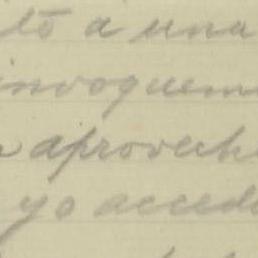 a una
invoquem
aprovech
yo acced